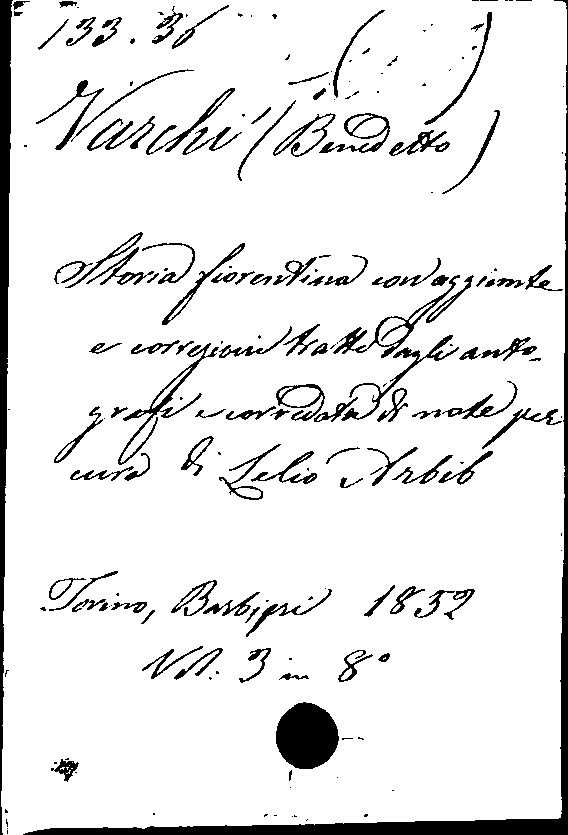 133.36
Varchi (Benedetto)
Storia fiorentina con aggiunte
e corregioni tratte dagli auto-
grafi e corredata di note per
cura di Lelio Arbib
Torino, 1852
Vol. 3 in 8°